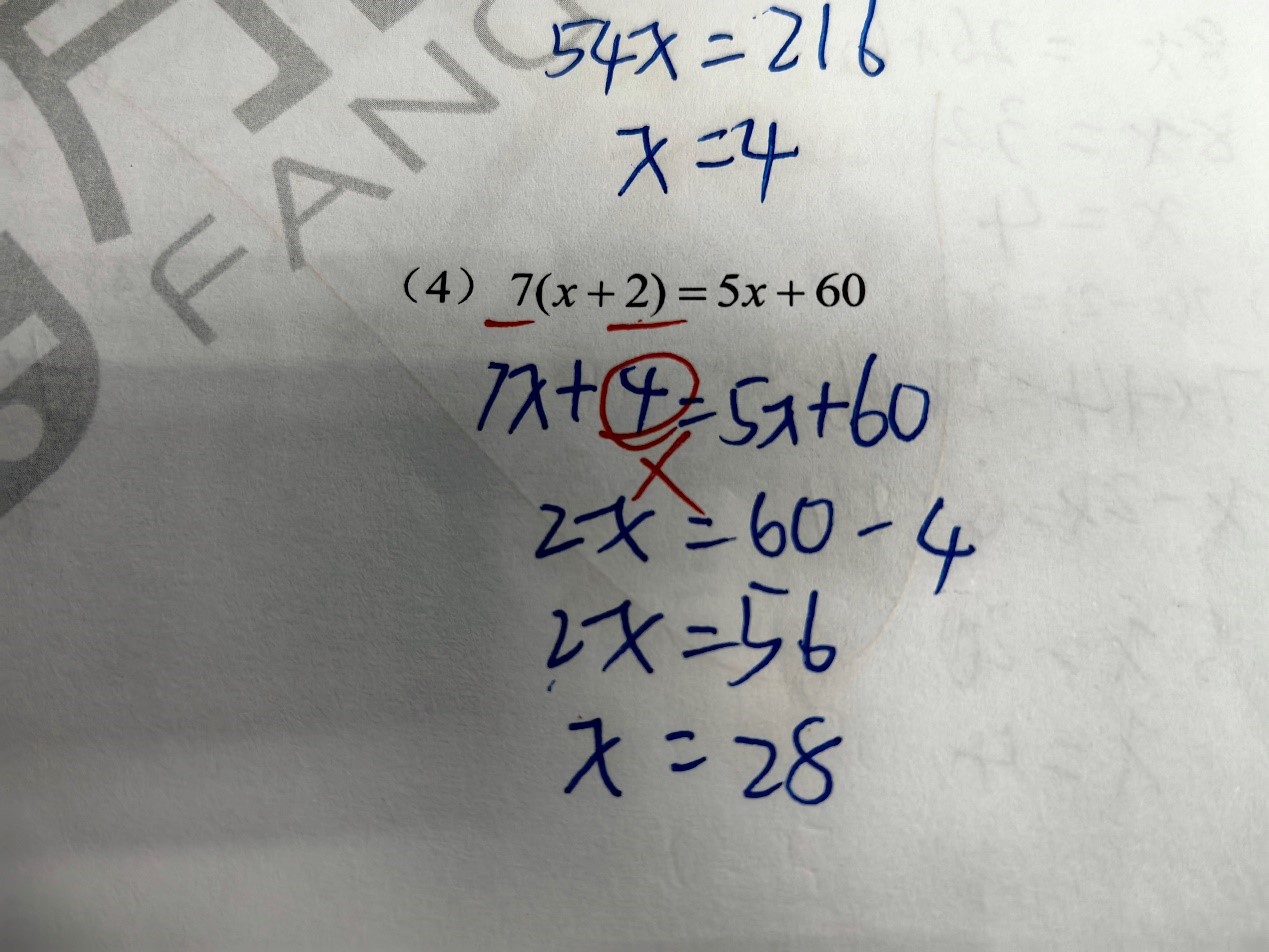 54x = 216
x = 4
FANG
（4） 7(x + 2) = 5x + 60
7x + 4 = 5x + 60
2x = 60 - 4
2x = 56
x = 28